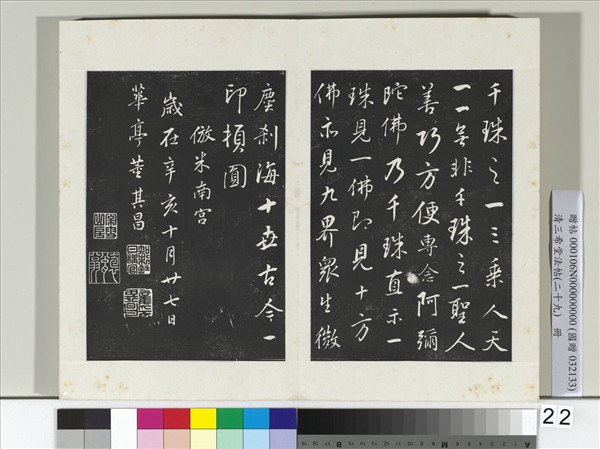 千珠之一三乘人天
一一無非千珠之一聖人
善巧方便專念阿彌
陀佛乃千珠直示一
珠見一佛即見十方
佛亦見九界眾生微
塵剎海十世古今一
印頓圓
倣米南宮
歲在辛亥十月廿七日
華亭董其昌
贈帖 000106N000000000 (國贈 032133)
清三希堂法帖(二十九) 冊
22